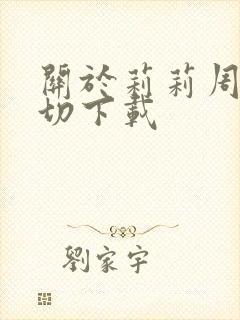 關於莉莉周
切下載
劉家宇